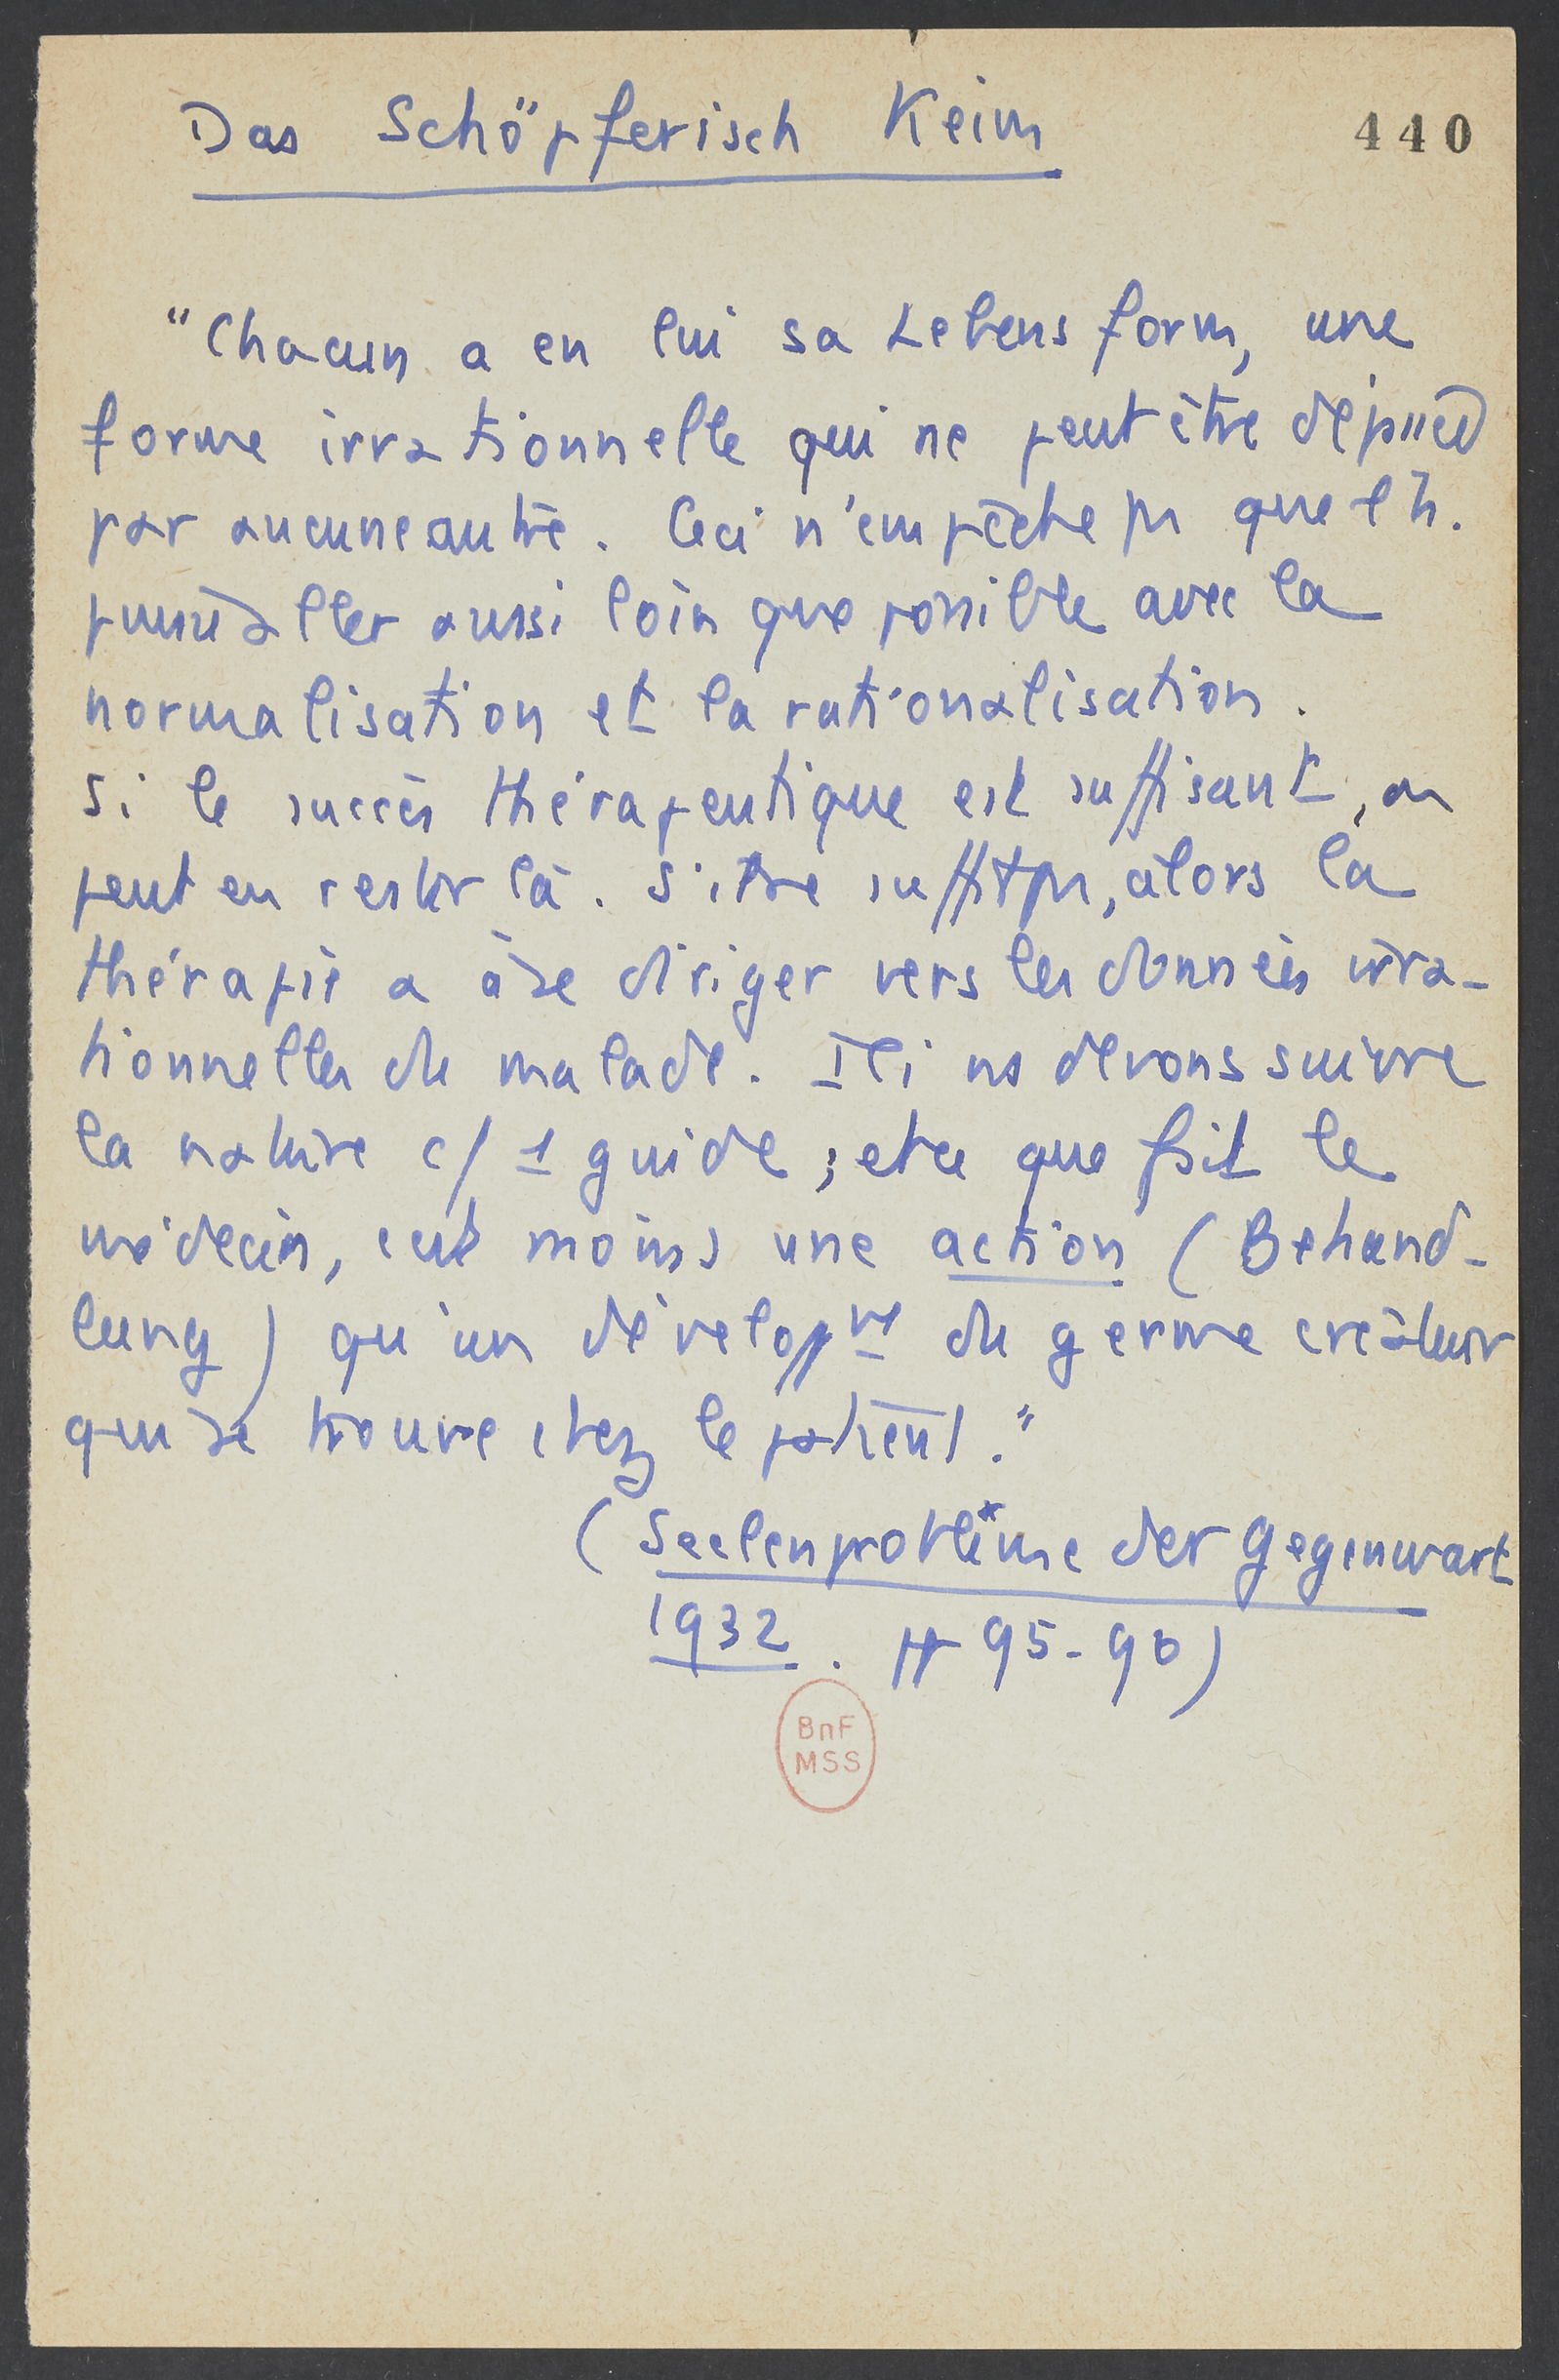 Das Schöpferisch Keim
440
"Chacun a en lui sa Lebensform, une
forme irrationnelle qui ne peut être
par aucune autre. Ceci n'empêche pas que l'h.
puisse aller aussi loin que possible avec la
normalisation et la rationalisation.
Si le succès thérapeutique est suffisant, on
peut en rester là. S'il ne suffit pas, alors la
thérapie a à se diriger vers les données irra-
tionnelles du malade. Ici ns devons suivre
la nature c/ 1 guide ; et ce que fait le
médecin, c'est moins une action (Behand-
lung) qu'un développt du germe créateur
qui se trouve chez le patient."
(Seelenprobleme der Gegenwart
1932. pp 95-96)
BnF
MSS